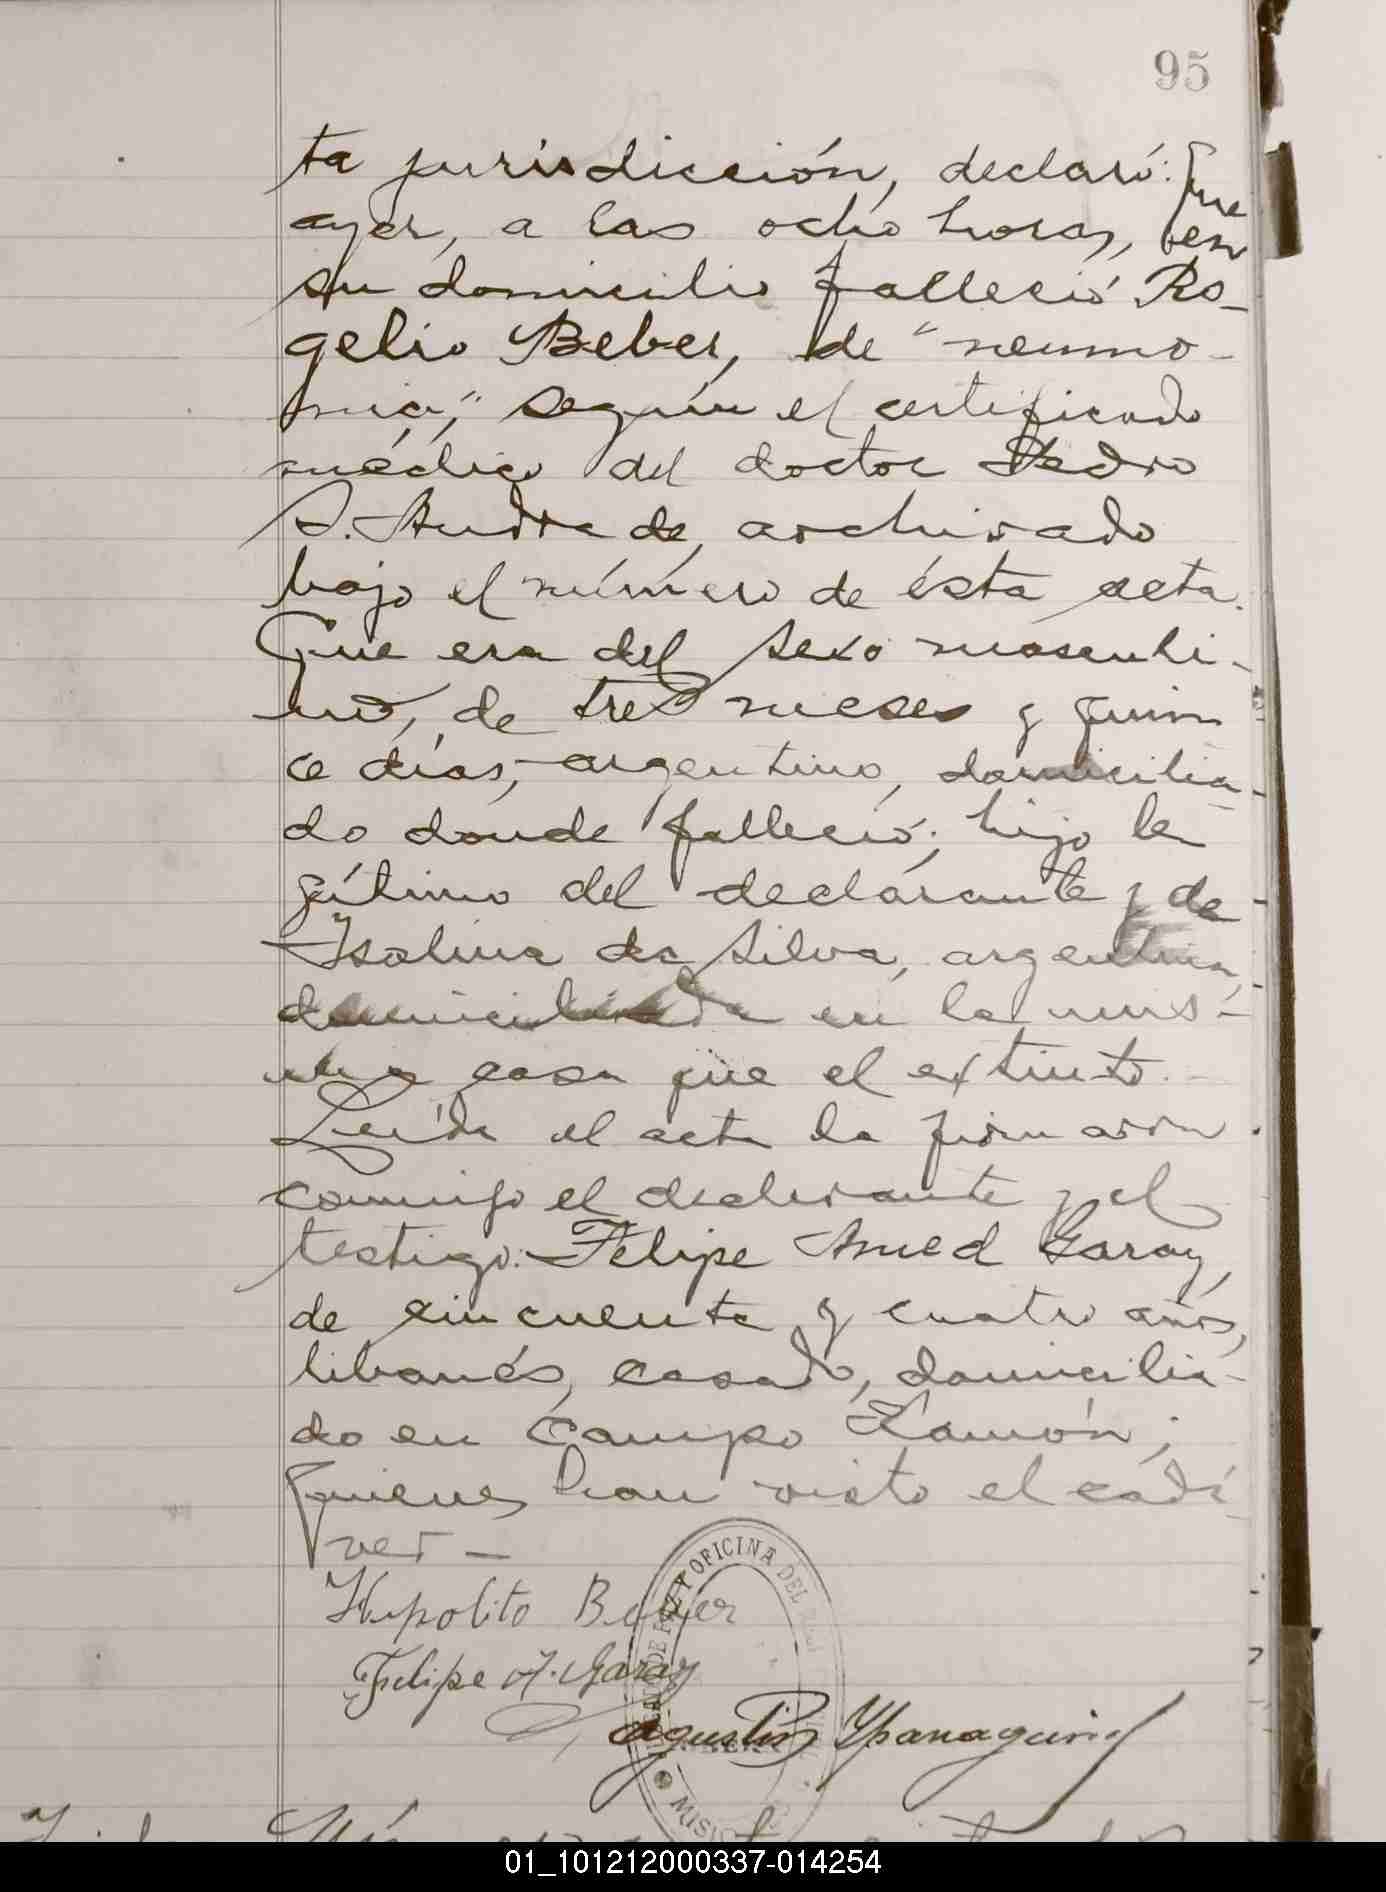 95
ta jurisdicción, declaró: Que
ayer, a las ocho horas, en
su domicilio falleció Ro-
gelio Beber, de "neumo-
nia", según el certificado
médico del doctor Pedro
S. Andrade, archivado
bajo el número de ésta acta.
Que era del sexo masculi-
no, de tres meses y quin
ce días, argentino, domicilia-
do donde falleció; hijo le
gítimo del declarante y de
Isolina da Silva, argentina,
domiciliada en la mis-
ma casa que el extinto.-
Leída el acta la firmaron
conmigo el declarante y el
testigo: Felipe Amed Garay,
de cincuenta y cuatro años,
libanés, casado, domicilia-
do en Campo Ramón;
quienes han visto el cadá-
ver-
Hipolito Beber
Felipe A. Garay
Agustin
DE PAZ Y OFICINA DEL
01_101212000337-014254